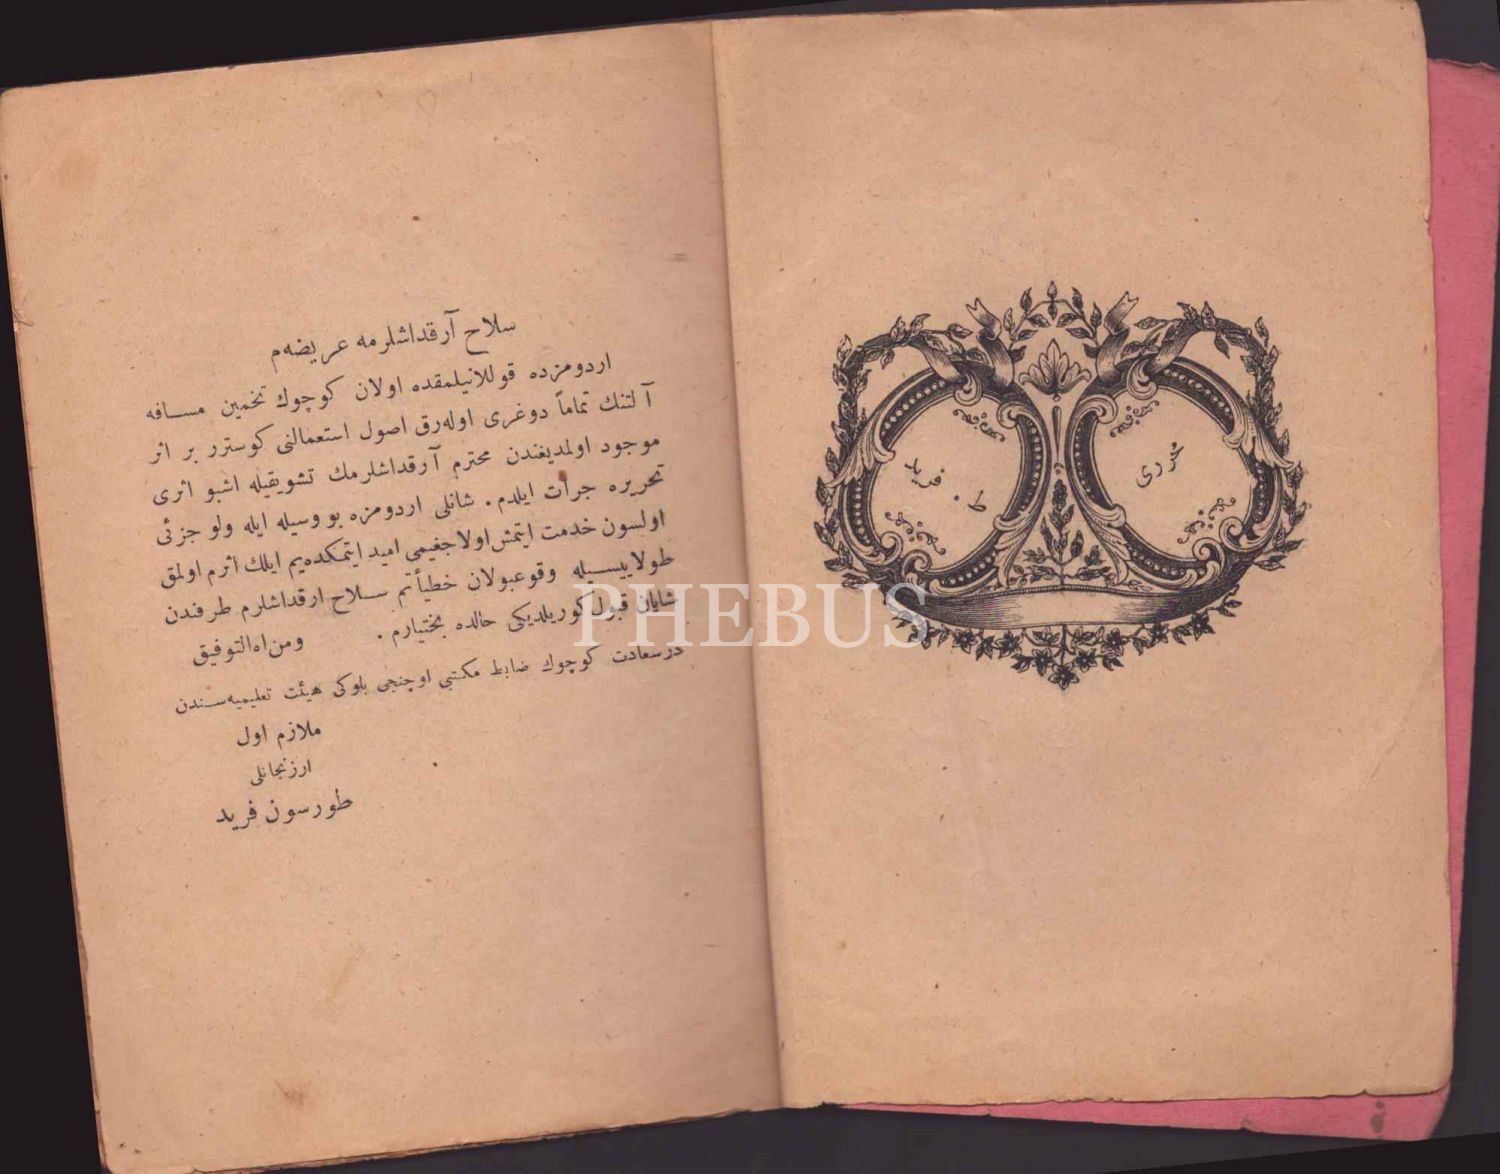 محرری
ط. فرید
سلاح آرقداشلرمه عریضه‌م
اردومزده قوللانیلمقده اولان کوچوك تخمین مسافه
آلتنك تماماً دوغری اوله‌رق اصول استعمالنی کوسترر بر اثر
موجود اولمدیغندن محترم آرقداشلرمك تشویقیله اشبو اثری
تحریره جرأت ایلدم. شانلی اردومزه بو وسیله ایله ولو جزئی
اولسون خدمت ایتمش اولاجغیمی امید ایتمکده‌یم ایلك اثرم اولمق
طولاییسیله وقوعبولان خطیأتم سلاح ارقداشلرم طرفندن
شایان قبول کوریلدیکی حالده بختیارم. ومن‌اه‌التوفیق
درسعادت کوچوك ضابط مکتبی اوچنجی بلوکی هیئت تعلیمیه‌سندن
ملازم اول
ارزنجانلی
طورسون فرید
PHEBUS